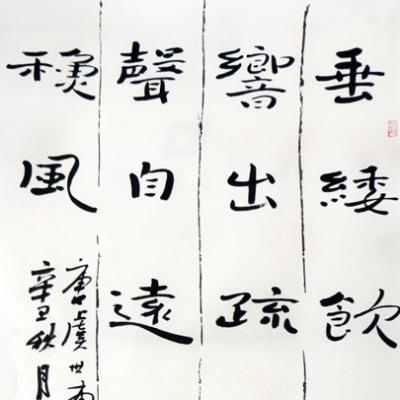 垂緌飲
響出疏
聲自遠
穐風
唐虞世南
辛丑秋月